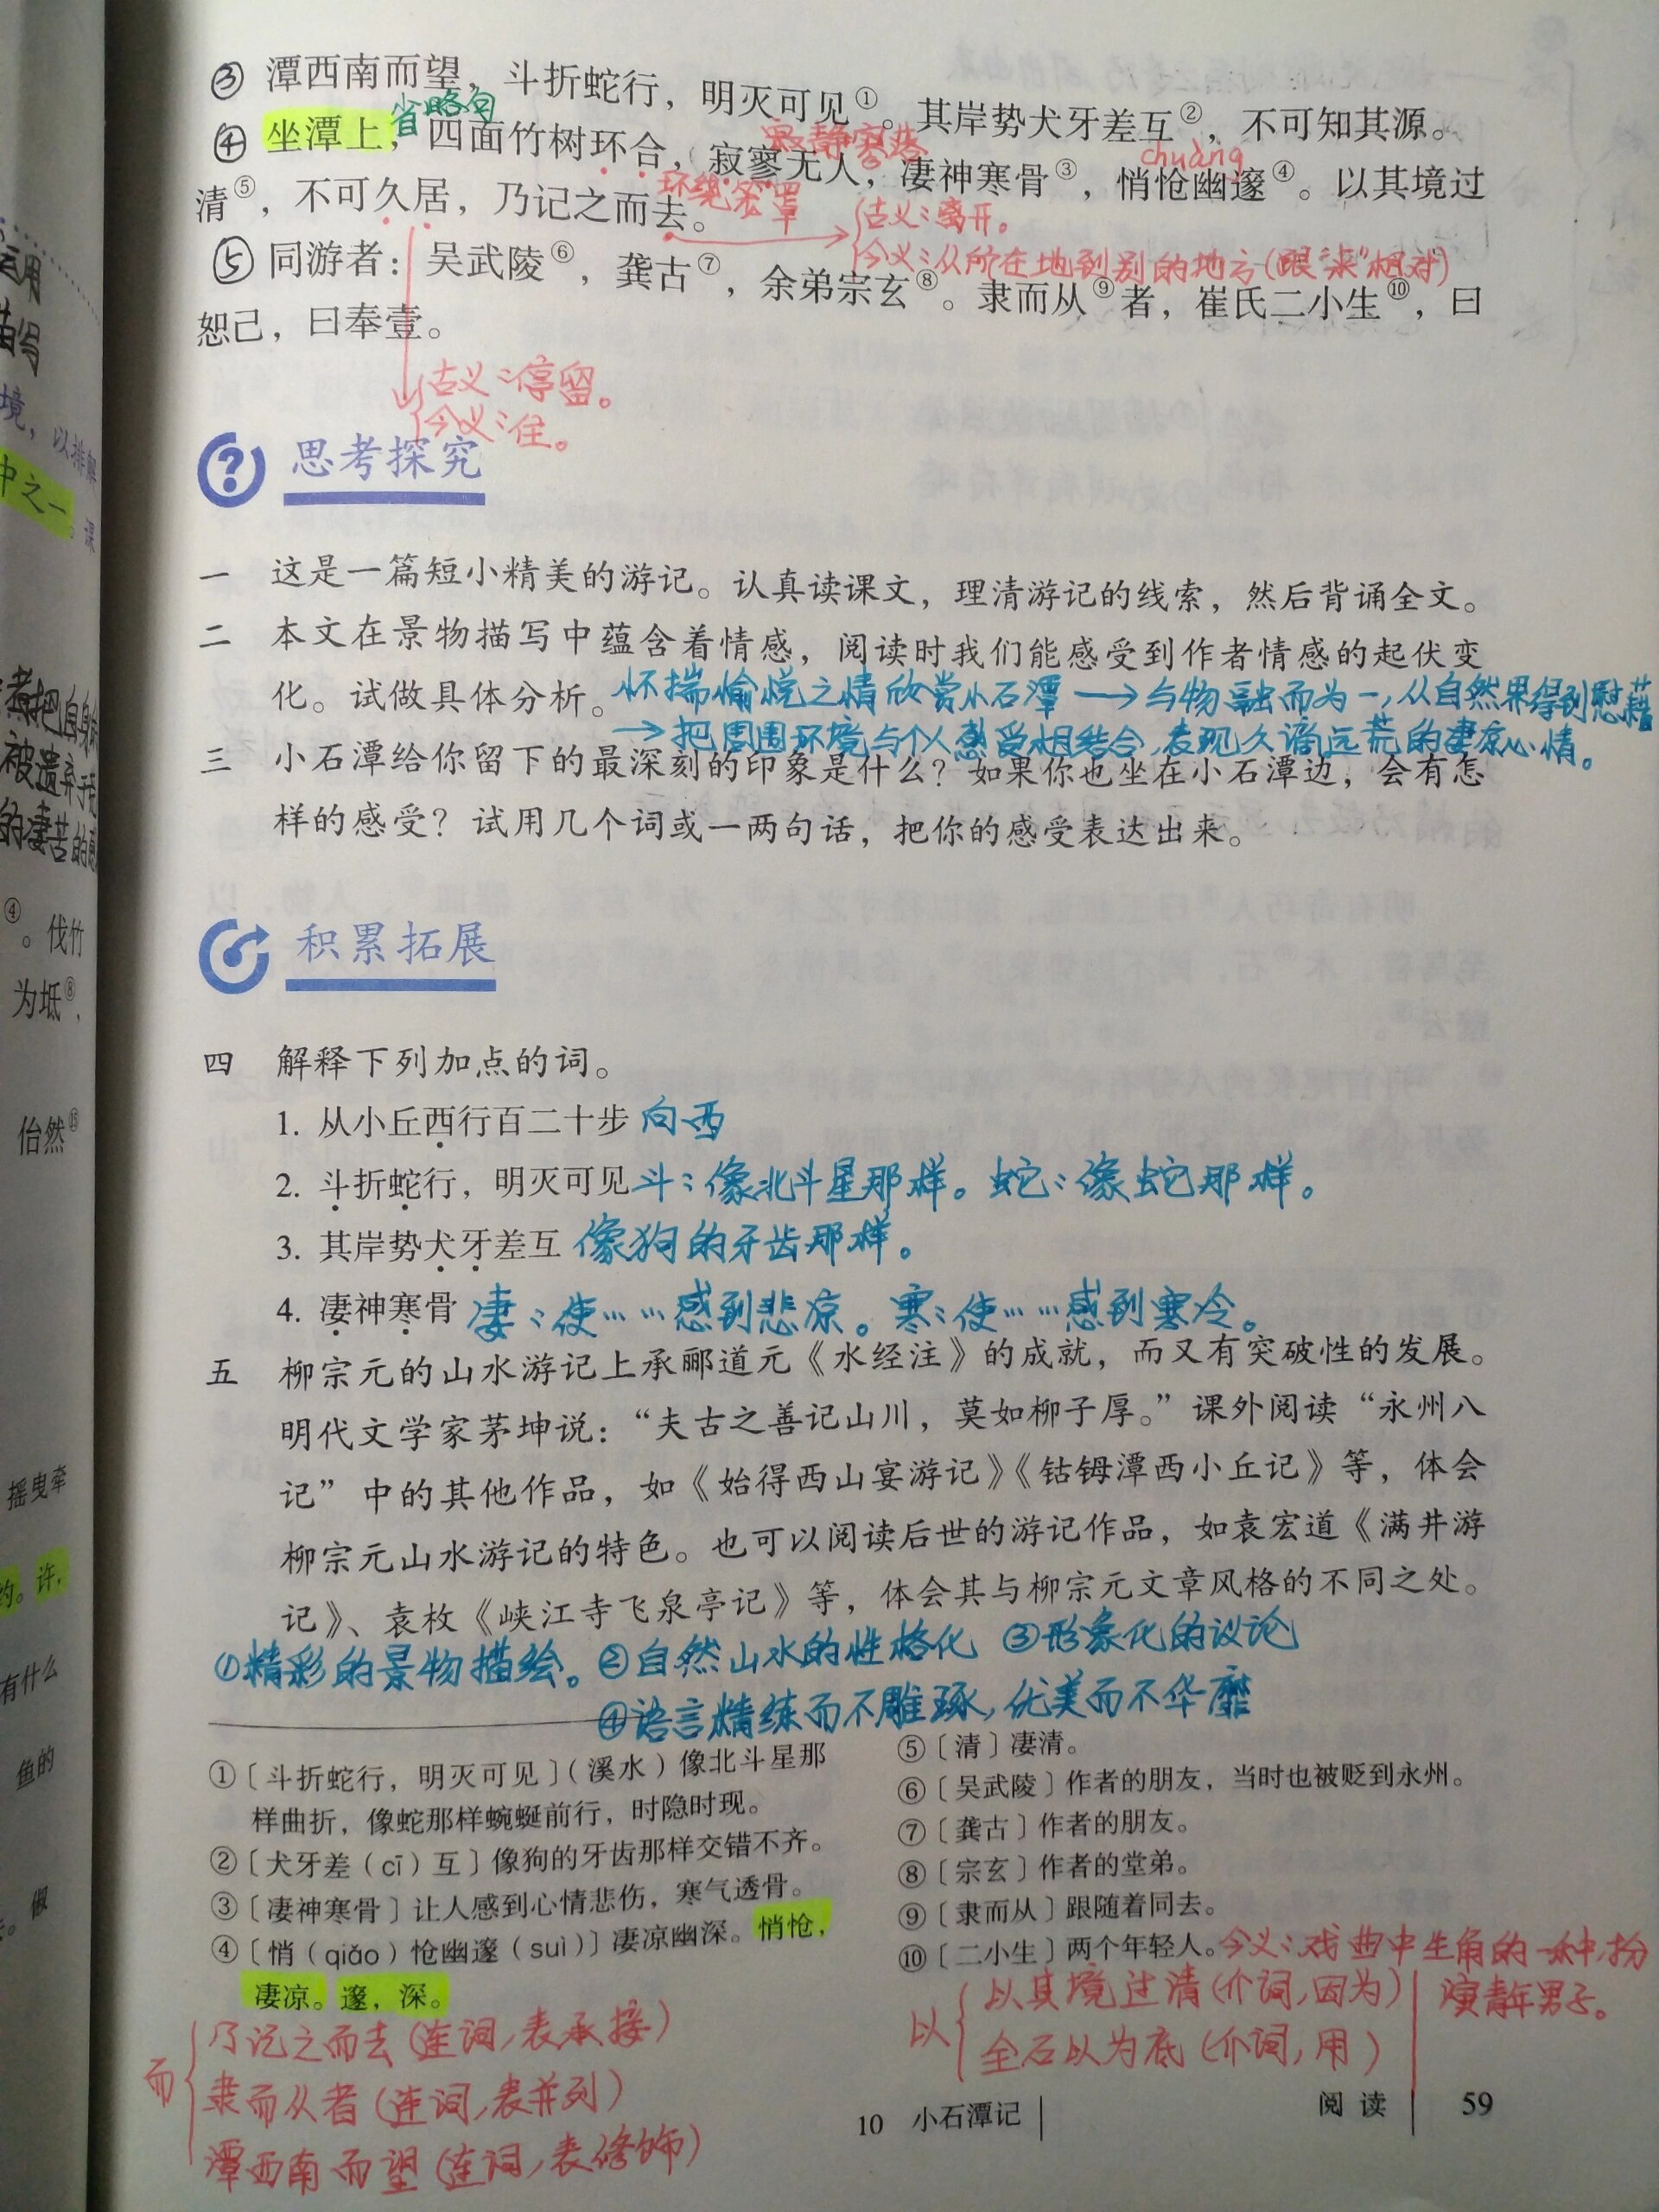 ③ 潭西南而望，斗折蛇行，明灭可见①。其岸势犬牙差互②，不可知其源。
省略句
④ 坐潭上，四面竹树环合，寂寥无人，凄神寒骨③，悄怆幽邃④。以其境过
寂静寥落
chuàng
环绕笼罩
清⑤，不可久居，乃记之而去。
古义：离开。
今义：从所在地到别的地方（跟“来”相对）
⑤ 同游者：吴武陵⑥，龚古⑦，余弟宗玄⑧。隶而从⑨者，崔氏二小生⑩，曰
恕己，曰奉壹。
古义：停留。
今义：住。
思考探究
一 这是一篇短小精美的游记。认真读课文，理清游记的线索，然后背诵全文。
二 本文在景物描写中蕴含着情感，阅读时我们能感受到作者情感的起伏变
化。试做具体分析。怀揣愉悦之情欣赏小石潭→与物融而为一，从自然界得到慰藉
→把周围环境与个人感受相结合，表现久谪远荒的凄凉心情。
三 小石潭给你留下的最深刻的印象是什么？如果你也坐在小石潭边，会有怎
样的感受？试用几个词或一两句话，把你的感受表达出来。
积累拓展
四 解释下列加点的词。
1. 从小丘西行百二十步 向西
2. 斗折蛇行，明灭可见 斗：像北斗星那样。蛇：像蛇那样。
3. 其岸势犬牙差互 像狗的牙齿那样。
4. 凄神寒骨 凄：使……感到悲凉。寒：使……感到寒冷。
五 柳宗元的山水游记上承郦道元《水经注》的成就，而又有突破性的发展。
明代文学家茅坤说：“夫古之善记山川，莫如柳子厚。”课外阅读“永州八
记”中的其他作品，如《始得西山宴游记》《钴鉧潭西小丘记》等，体会
柳宗元山水游记的特色。也可以阅读后世的游记作品，如袁宏道《满井游
记》、袁枚《峡江寺飞泉亭记》等，体会其与柳宗元文章风格的不同之处。
①精彩的景物描绘。②自然山水的性格化 ③形象化的议论
④语言精练而不雕琢，优美而不华靡
①〔斗折蛇行，明灭可见〕（溪水）像北斗星那
样曲折，像蛇那样蜿蜒前行，时隐时现。
②〔犬牙差（cī）互〕像狗的牙齿那样交错不齐。
③〔凄神寒骨〕让人感到心情悲伤，寒气透骨。
④〔悄（qiǎo）怆幽邃（suì）〕凄凉幽深。悄怆，
凄凉。邃，深。
⑤〔清〕凄清。
⑥〔吴武陵〕作者的朋友，当时也被贬到永州。
⑦〔龚古〕作者的朋友。
⑧〔宗玄〕作者的堂弟。
⑨〔隶而从〕跟随着同去。
⑩〔二小生〕两个年轻人。今义：戏曲中生角的一种，扮
演青年男子。
而
乃记之而去（连词，表承接）
隶而从者（连词，表并列）
潭西南而望（连词，表修饰）
以
以其境过清（介词，因为）
全石以为底（介词，用）
10 小石潭记
阅读 59
运用
描写
境，以排解
中之一。课
④。伐竹
为坻⑧，
佁然⑮
摇曳牵
约。许，
有什么
鱼的